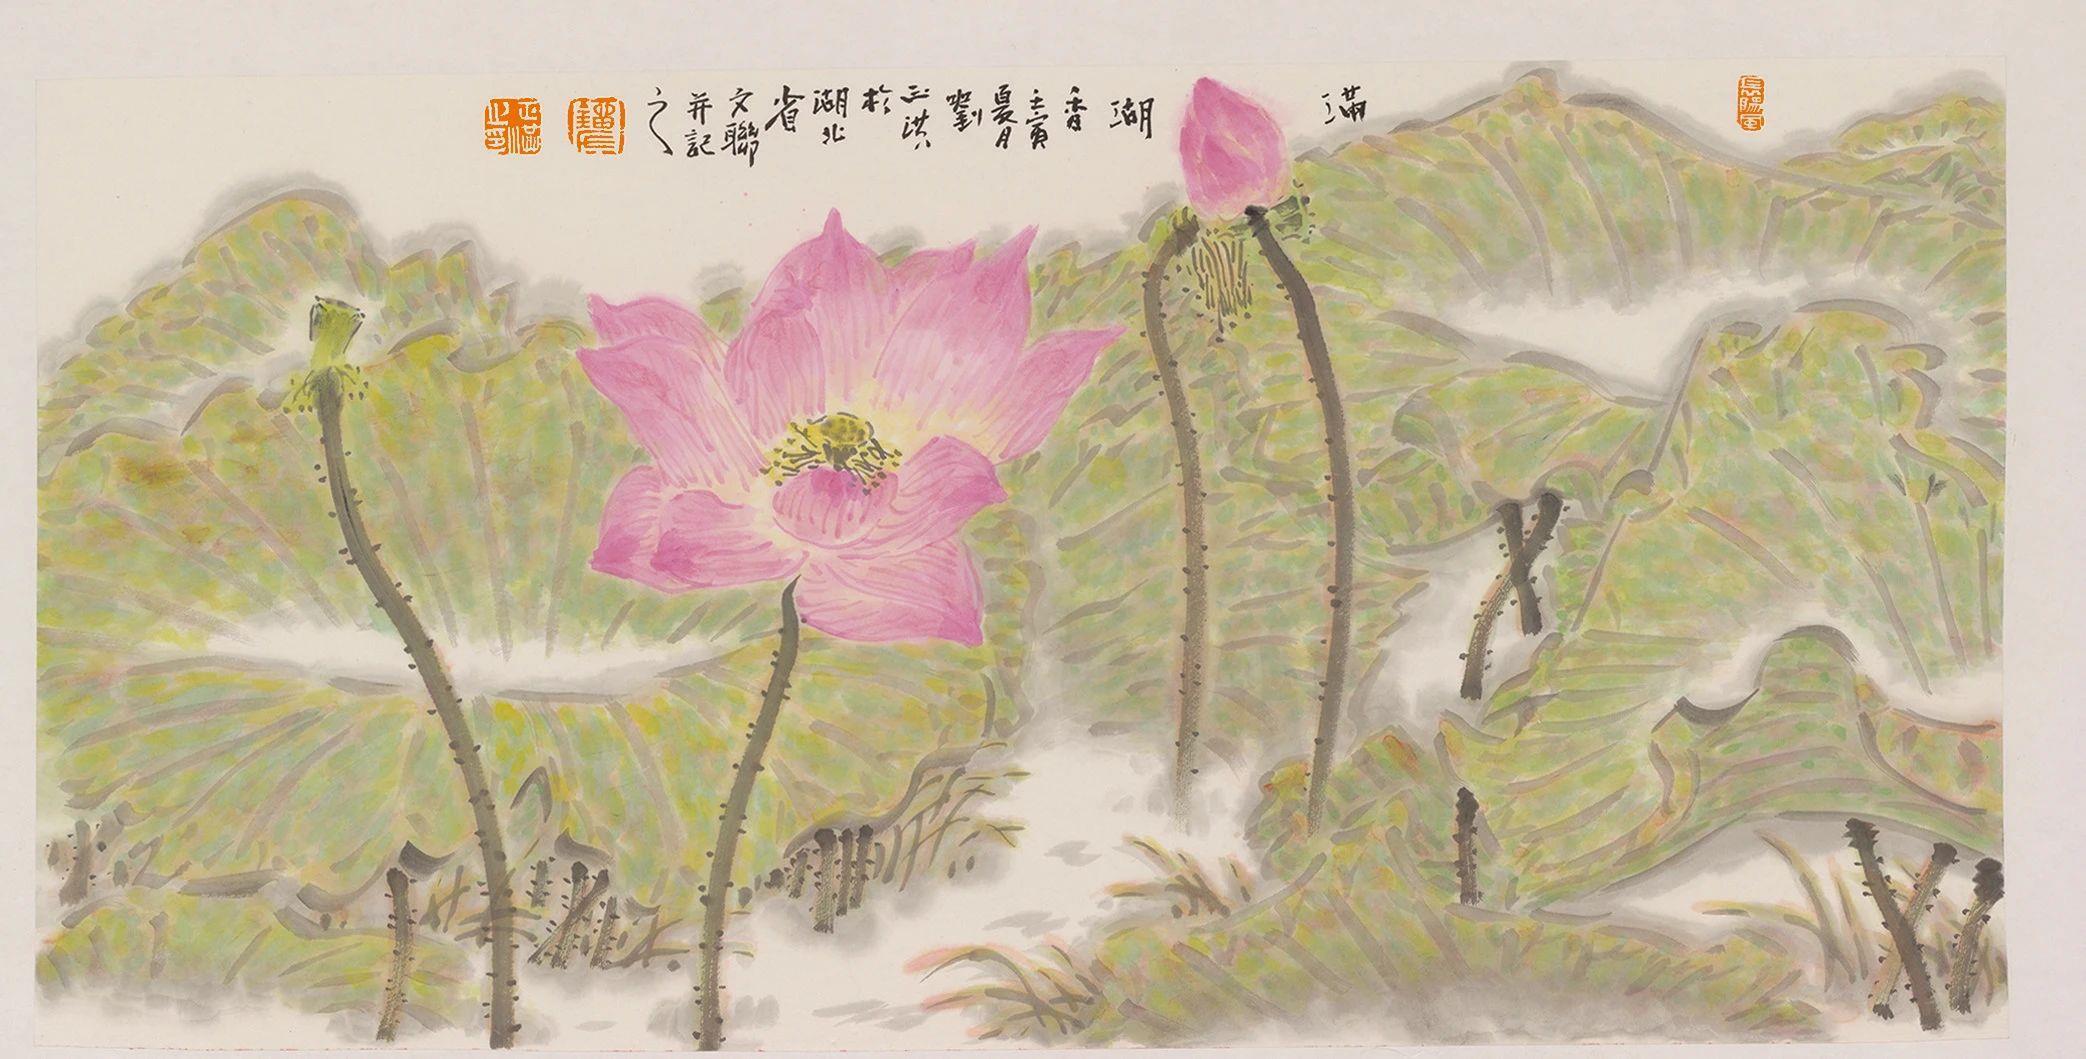 滿
湖
香
壬寅
夏月
劉
正洪
於
湖北
省
文聯
并記
之